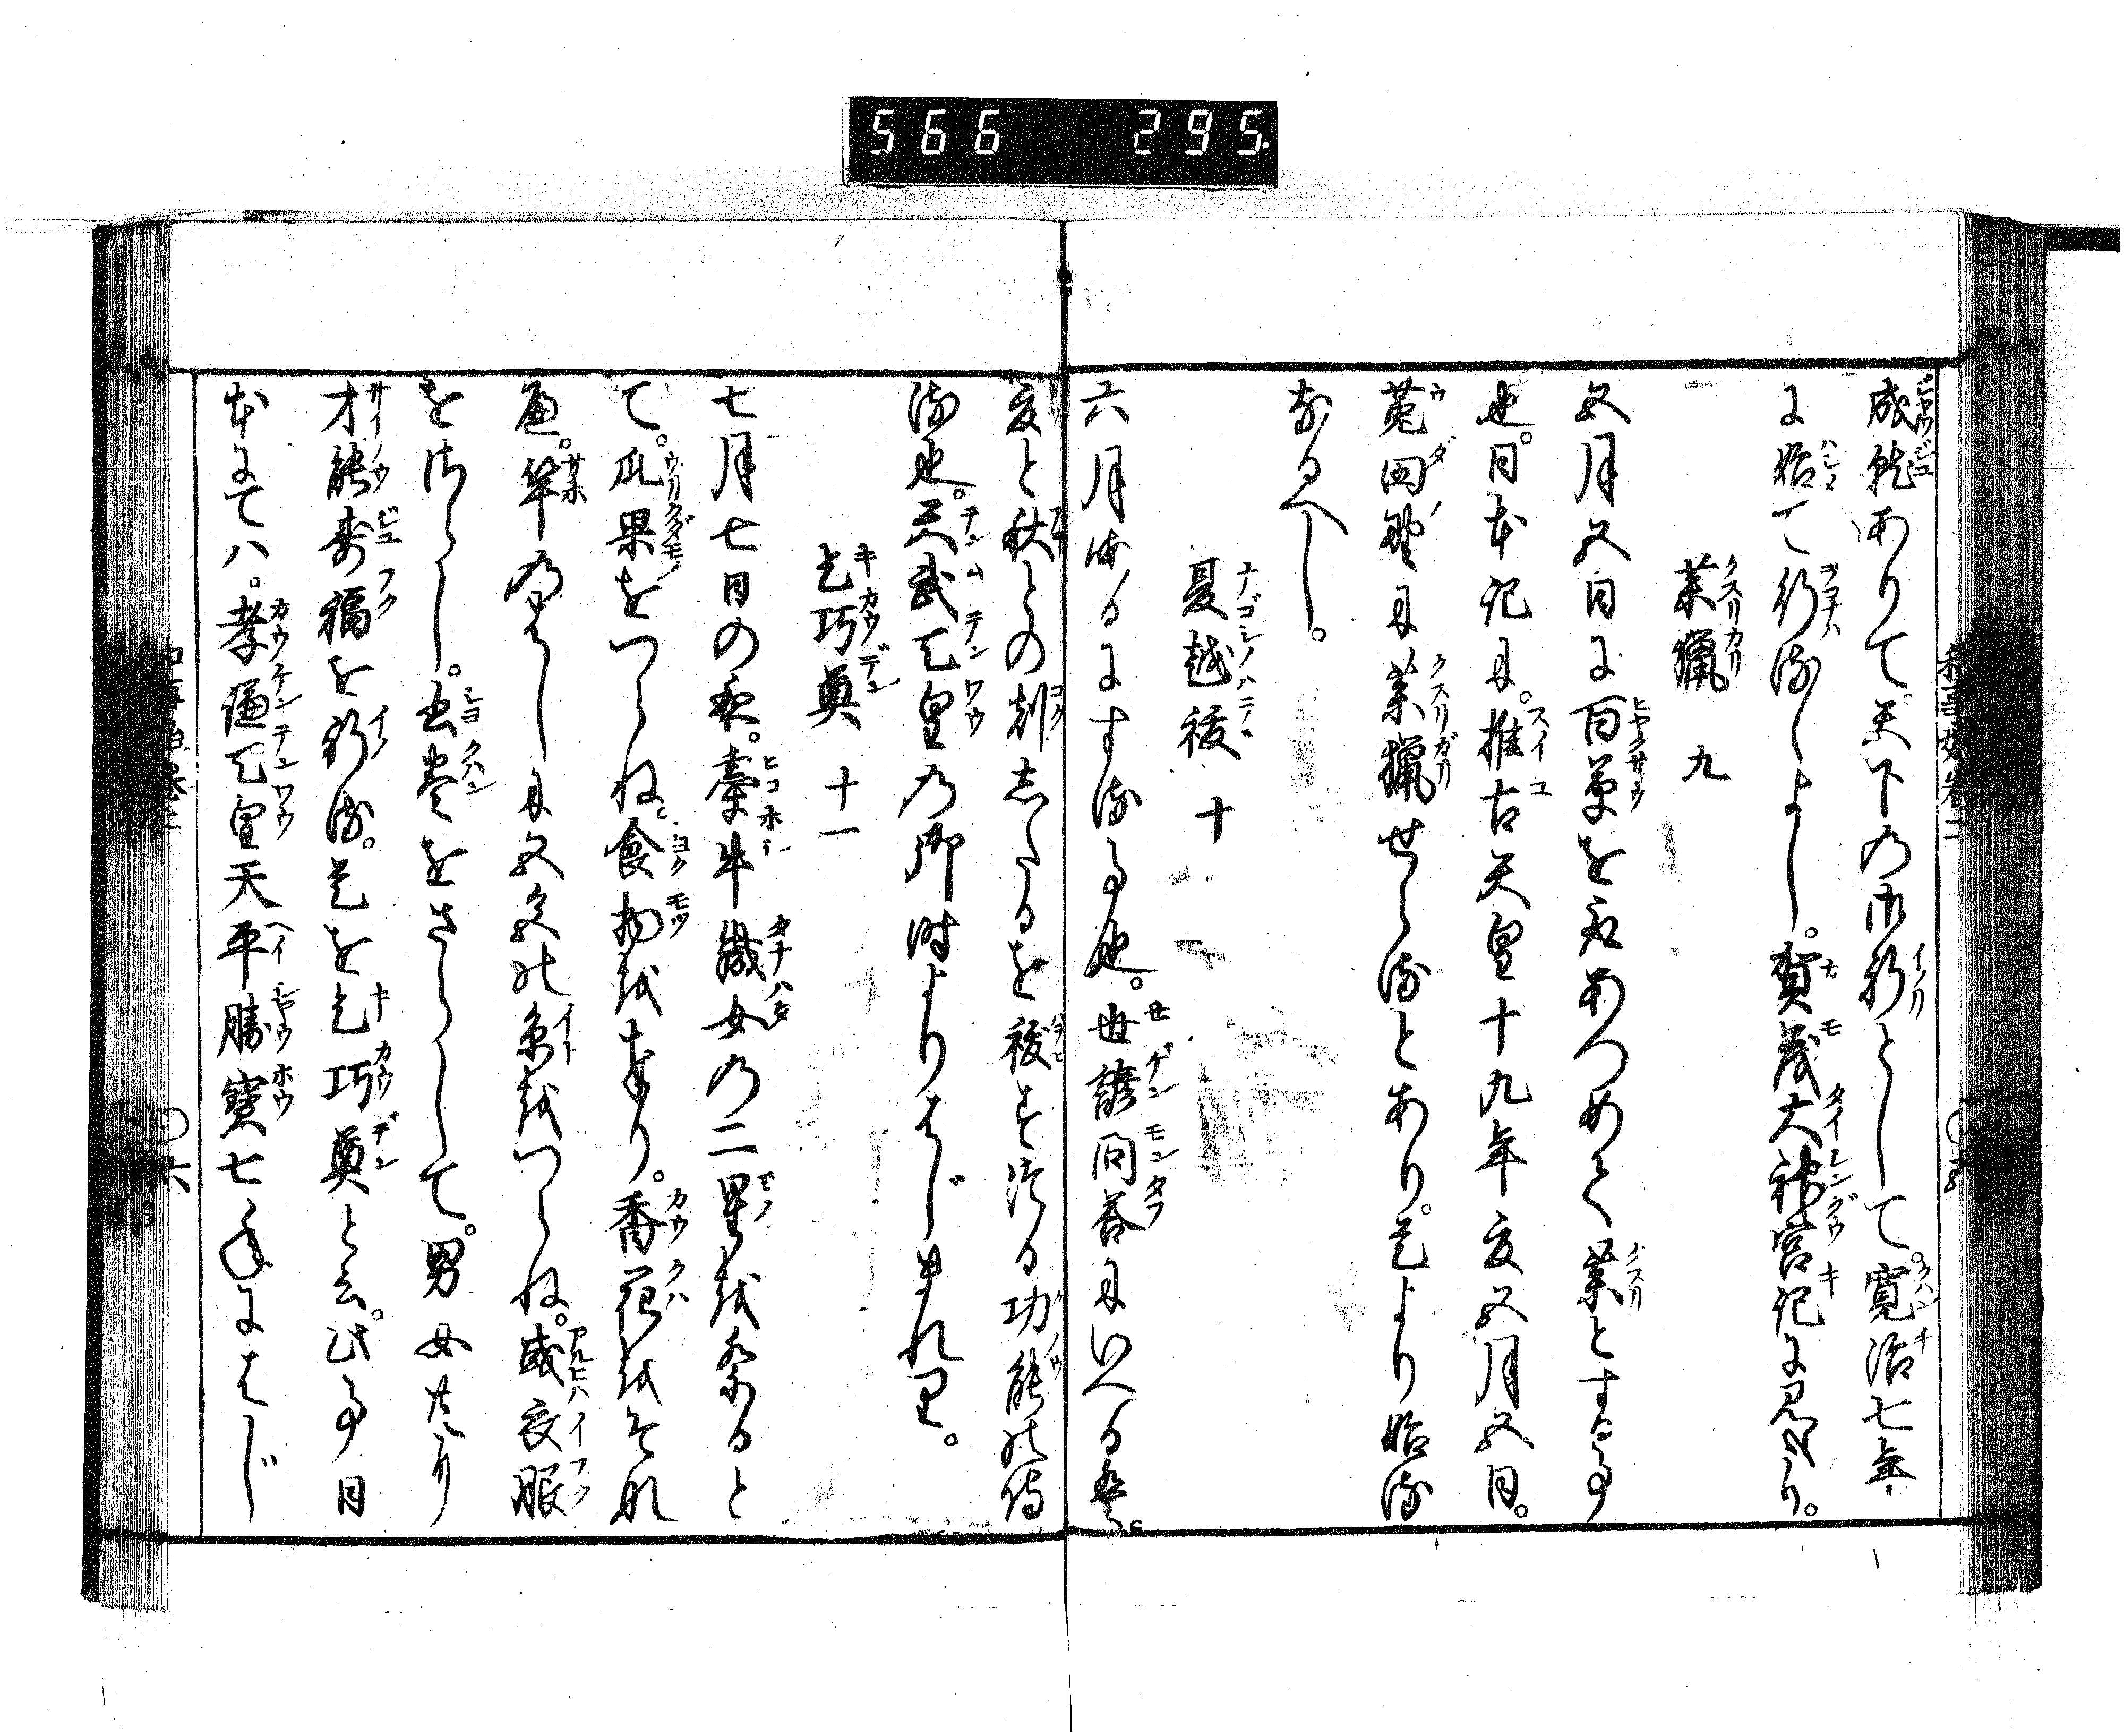 566 295
成就ありて。天下の御祈として。寛治七年
に始て行るゝよし。賀茂大神宮記に見えたり。
薬猟 九
五月五日に百草を取あつめて薬とする事
也。日本記に。推古天皇十九年夏五月五日。
菟田野に薬猟せらるとあり。是より始る
なるべし。
夏越祓 十
六月晦日にする事也。世諺問答にいへるは。
夏と秋との剋したるを祓する功能の侍
る也。天武天皇の御時よりはじまれり。
乞巧奠 十一
七月七日の夜。牽牛織女の二星を祭ると
て。瓜果をつらね食物を奉り。香花をそなへ
竿のはしに五色の糸をつらね。或衣服
をさらし。書巻をさらして。男女
才能寿福を祈る。是を乞巧奠と云。此事日
本にては。孝謙天皇天平勝宝七年にはじ